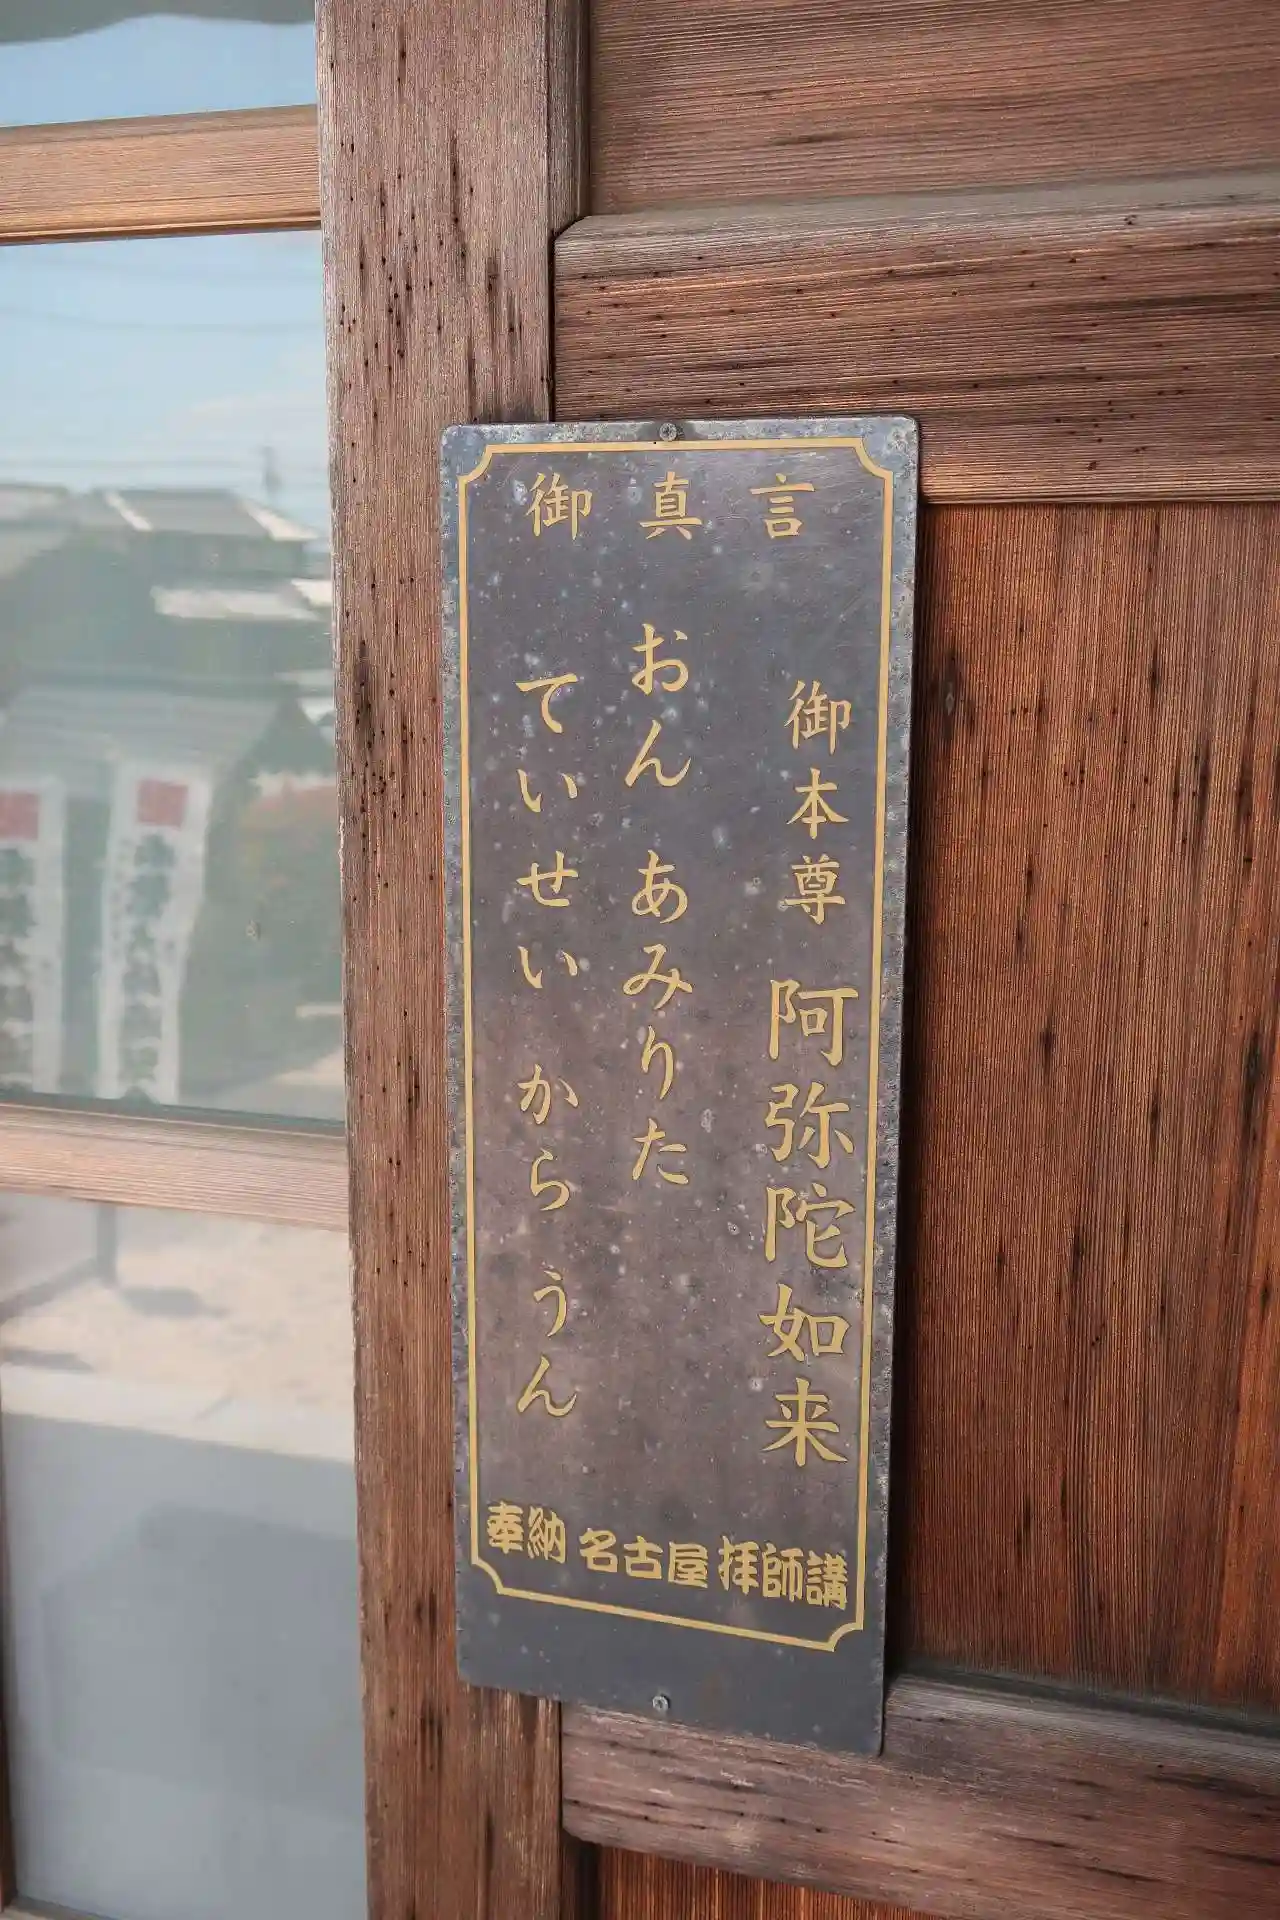 御真言
御本尊 阿弥陀如来
おん あみりた
ていせい から うん
奉納 名古屋 拝師講